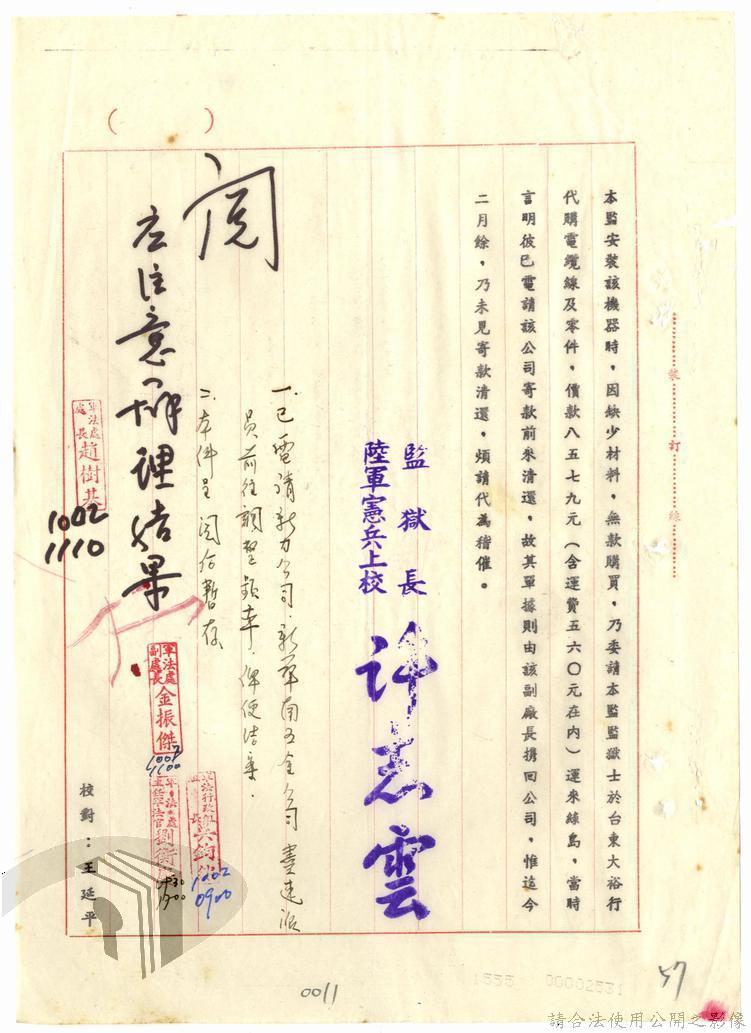 本監安裝該機器時，因缺少材料，無款購買，乃委請本監監獄士於台東大裕行
代購電纜線及零件，價款八五七九元（含運費五六〇元在內）運來綠島，當時
言明彼已電請該公司寄款前來清還，故其單據則由該副廠長携回公司，惟迄今
二月餘，乃未見寄款清還，煩請代為稽催。
裝訂線
監獄長
陸軍憲兵上校
許志雲
一.已電請新力公司.新華南五金公司 儘速派
員前往調整 ，俾便結案.
二.本件呈 閱后暫存
閱
应注意辦理结果
軍法處
處長 趙樹基
1002
1110
軍法處
副處長 金振傑
1002
1100
軍法處
主任軍法官 劉衡
0930
1700
軍法行政
1002
0900
校對：王延平
( )
0011
1555 00002531
57
請合法使用公開之影像